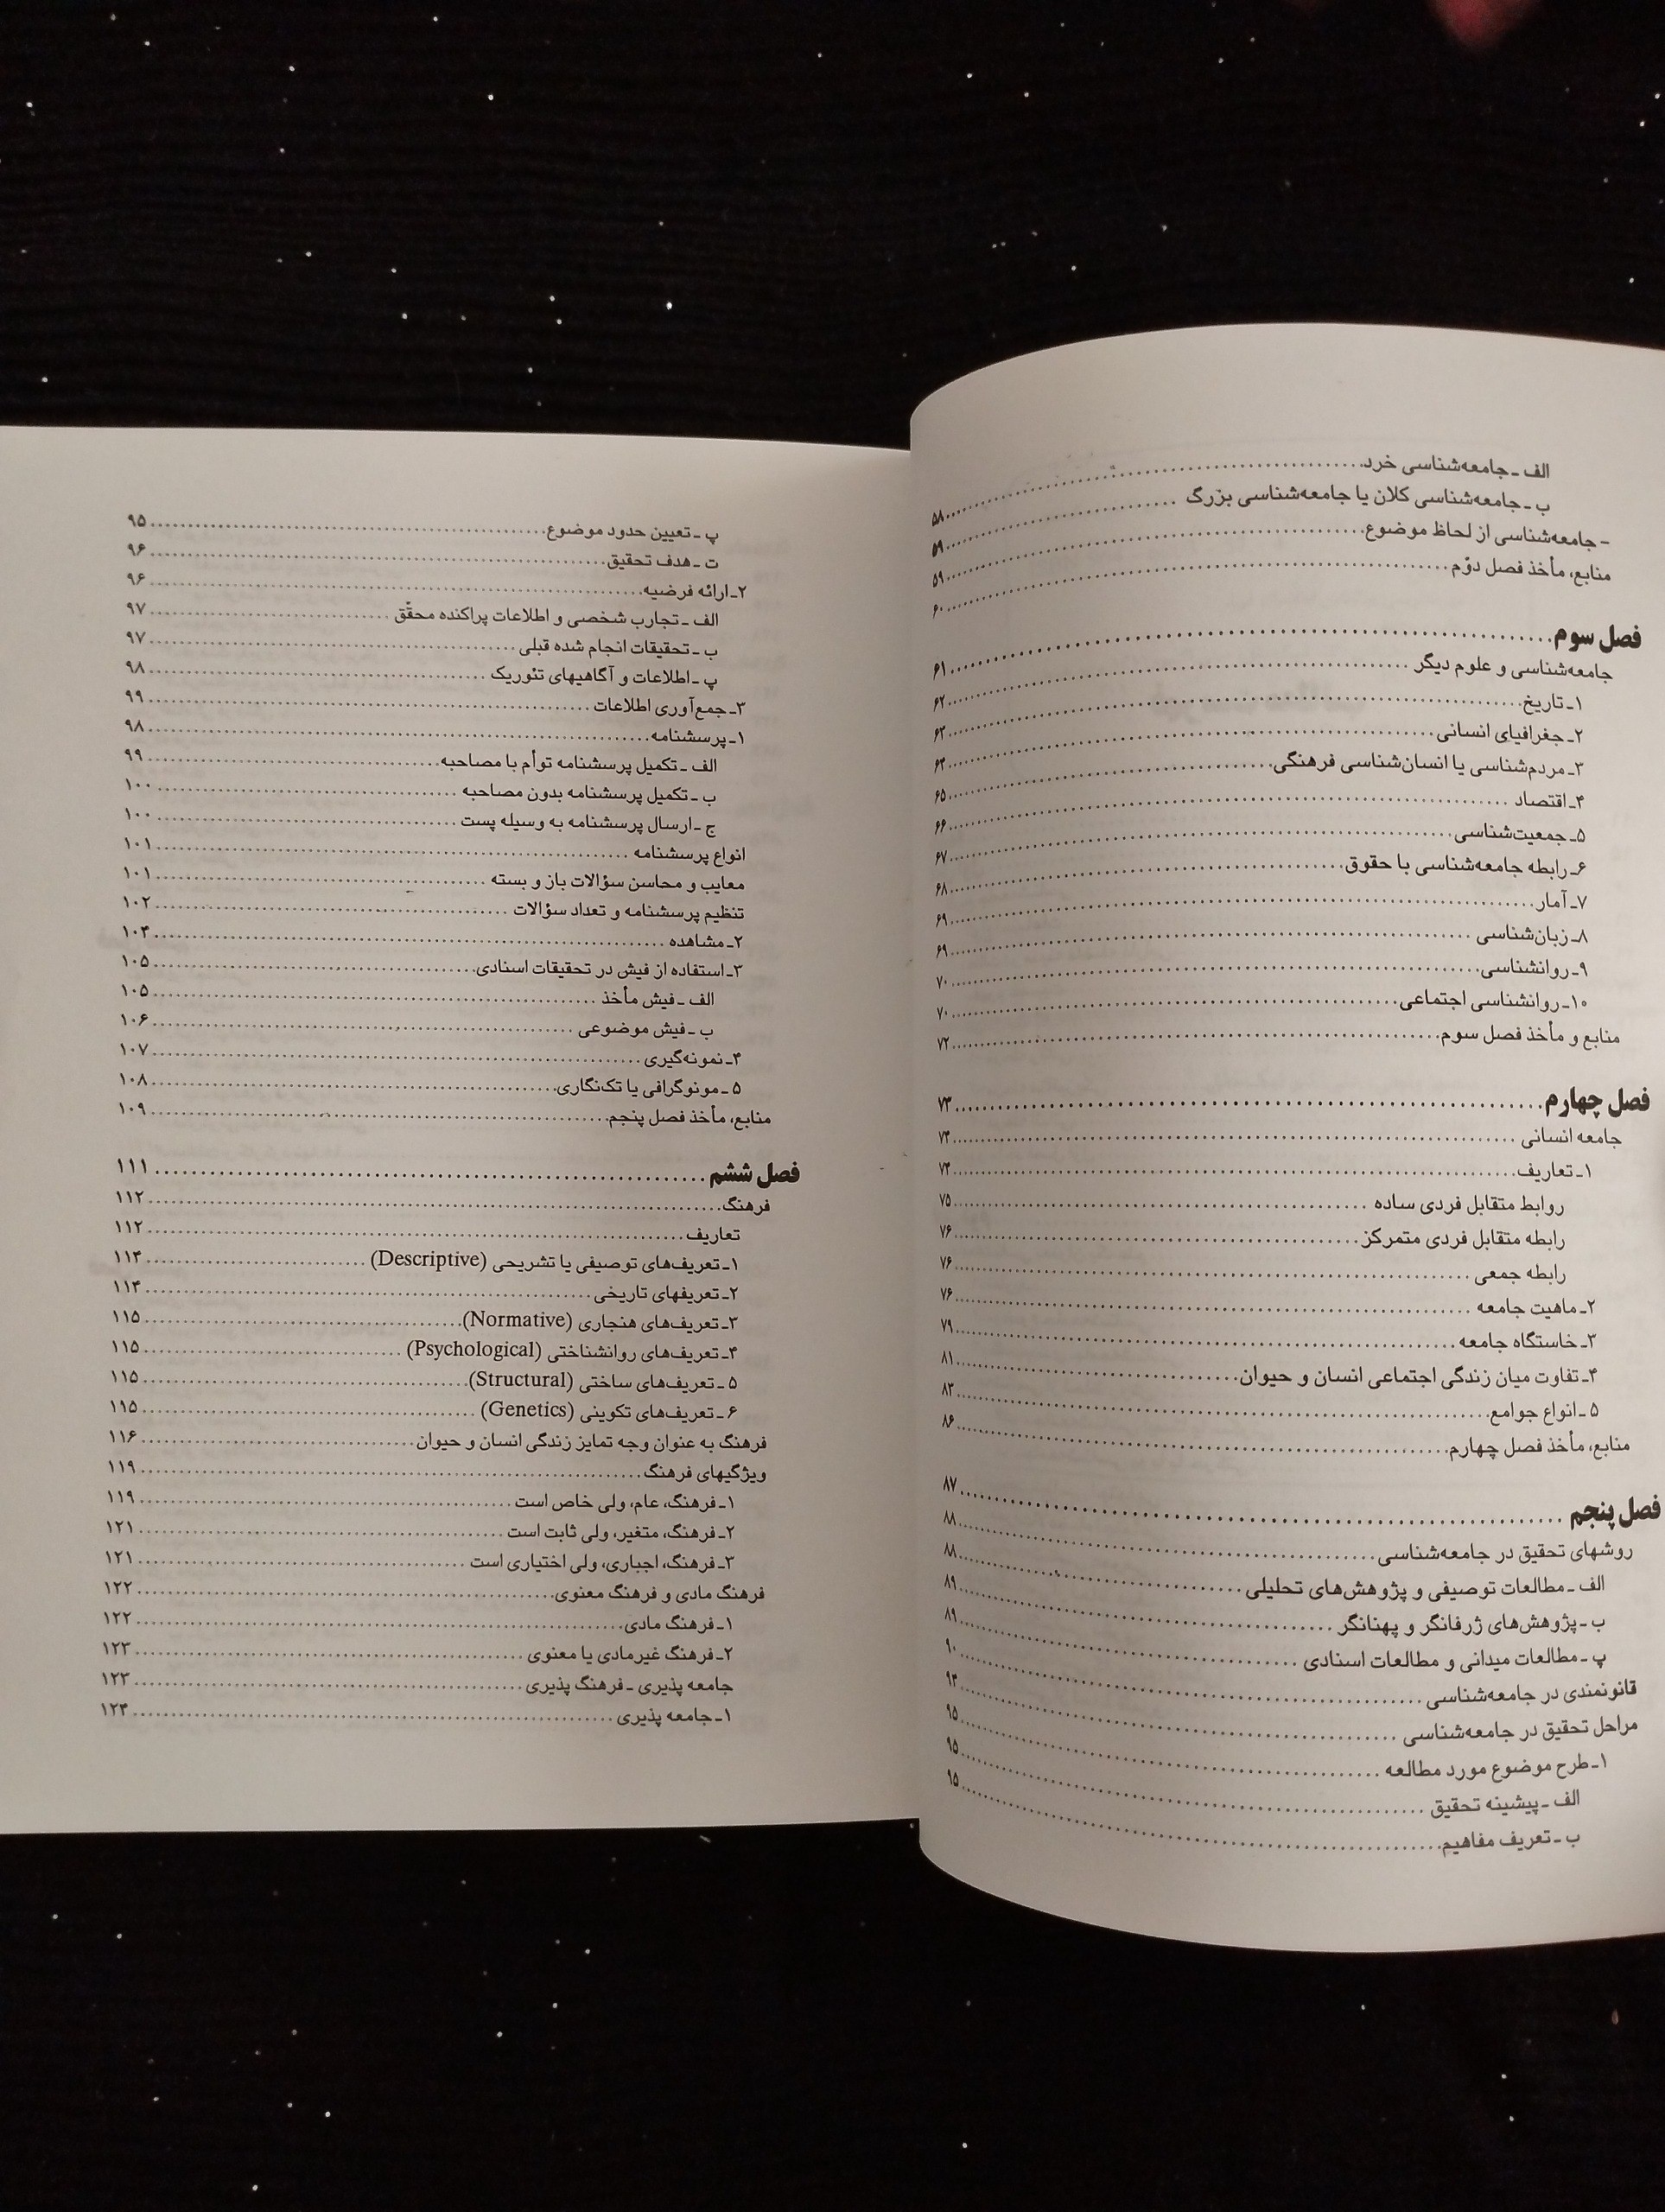 الف ـ جامعه‌شناسی خرد ........ ۵۸
ب ـ جامعه‌شناسی کلان یا جامعه‌شناسی بزرگ ........ ۵۹
- جامعه‌شناسی از لحاظ موضوع ........ ۵۹
منابع، مأخذ فصل دوّم ........ ۶۰
فصل سوم ........ ۶۱
جامعه‌شناسی و علوم دیگر ........ ۶۲
۱ـ تاریخ ........ ۶۳
۲ـ جغرافیای انسانی ........ ۶۴
۳ـ مردم‌شناسی یا انسان‌شناسی فرهنگی ........ ۶۵
۴ـ اقتصاد ........ ۶۶
۵ـ جمعیت‌شناسی ........ ۶۷
۶ـ رابطه جامعه‌شناسی با حقوق ........ ۶۸
۷ـ آمار ........ ۶۹
۸ـ زبان‌شناسی ........ ۶۹
۹ـ روانشناسی ........ ۷۰
۱۰ـ روانشناسی اجتماعی ........ ۷۰
منابع و مأخذ فصل سوم ........ ۷۲
فصل چهارم ........ ۷۳
جامعه انسانی ........ ۷۴
۱ـ تعاریف ........ ۷۴
روابط متقابل فردی ساده ........ ۷۵
رابطه متقابل فردی متمرکز ........ ۷۶
رابطه جمعی ........ ۷۶
۲ـ ماهیت جامعه ........ ۷۶
۳ـ خاستگاه جامعه ........ ۷۹
۴ـ تفاوت میان زندگی اجتماعی انسان و حیوان ........ ۸۱
۵ ـ انواع جوامع ........ ۸۳
منابع، مأخذ فصل چهارم ........ ۸۶
فصل پنجم ........ ۸۷
روشهای تحقیق در جامعه‌شناسی ........ ۸۸
الف ـ مطالعات توصیفی و پژوهش‌های تحلیلی ........ ۸۸
ب ـ پژوهش‌های ژرفانگر و پهنانگر ........ ۸۹
پ ـ مطالعات میدانی و مطالعات اسنادی ........ ۸۹
قانونمندی در جامعه‌شناسی ........ ۹۰
مراحل تحقیق در جامعه‌شناسی ........ ۹۴
۱ـ طرح موضوع مورد مطالعه ........ ۹۵
الف ـ پیشینه تحقیق ........ ۹۵
ب ـ تعریف مفاهیم ........ ۹۵
پ ـ تعیین حدود موضوع ........ ۹۵
ت ـ هدف تحقیق ........ ۹۶
۲ـ ارائه فرضیه ........ ۹۶
الف ـ تجارب شخصی و اطلاعات پراکنده محقّق ........ ۹۷
ب ـ تحقیقات انجام شده قبلی ........ ۹۷
پ ـ اطلاعات و آگاهیهای تئوریک ........ ۹۸
۳ـ جمع‌آوری اطلاعات ........ ۹۹
۱ـ پرسشنامه ........ ۹۸
الف ـ تکمیل پرسشنامه توأم با مصاحبه ........ ۹۹
ب ـ تکمیل پرسشنامه بدون مصاحبه ........ ۱۰۰
ج ـ ارسال پرسشنامه به وسیله پست ........ ۱۰۰
انواع پرسشنامه ........ ۱۰۱
معایب و محاسن سؤالات باز و بسته ........ ۱۰۱
تنظیم پرسشنامه و تعداد سؤالات ........ ۱۰۲
۲ـ مشاهده ........ ۱۰۴
۳ـ استفاده از فیش در تحقیقات اسنادی ........ ۱۰۵
الف ـ فیش مأخذ ........ ۱۰۵
ب ـ فیش موضوعی ........ ۱۰۶
۴ـ نمونه‌گیری ........ ۱۰۷
۵ ـ مونوگرافی یا تک‌نگاری ........ ۱۰۸
منابع، مأخذ فصل پنجم ........ ۱۰۹
فصل ششم ........ ۱۱۱
فرهنگ ........ ۱۱۲
تعاریف ........ ۱۱۲
۱ـ تعریف‌های توصیفی یا تشریحی (Descriptive) ........ ۱۱۴
۲ـ تعریفهای تاریخی ........ ۱۱۴
۳ـ تعریف‌های هنجاری (Normative) ........ ۱۱۵
۴ـ تعریف‌های روانشناختی (Psychological) ........ ۱۱۵
۵ ـ تعریف‌های ساختی (Structural) ........ ۱۱۵
۶ ـ تعریف‌های تکوینی (Genetics) ........ ۱۱۵
فرهنگ به عنوان وجه تمایز زندگی انسان و حیوان ........ ۱۱۶
ویژگیهای فرهنگ ........ ۱۱۹
۱ـ فرهنگ، عام، ولی خاص است ........ ۱۱۹
۲ـ فرهنگ، متغیر، ولی ثابت است ........ ۱۲۱
۳ـ فرهنگ، اجباری، ولی اختیاری است ........ ۱۲۱
فرهنگ مادی و فرهنگ معنوی ........ ۱۲۲
۱ـ فرهنگ مادی ........ ۱۲۲
۲ـ فرهنگ غیرمادی یا معنوی ........ ۱۲۳
جامعه پذیری ـ فرهنگ پذیری ........ ۱۲۳
۱ـ جامعه پذیری ........ ۱۲۴